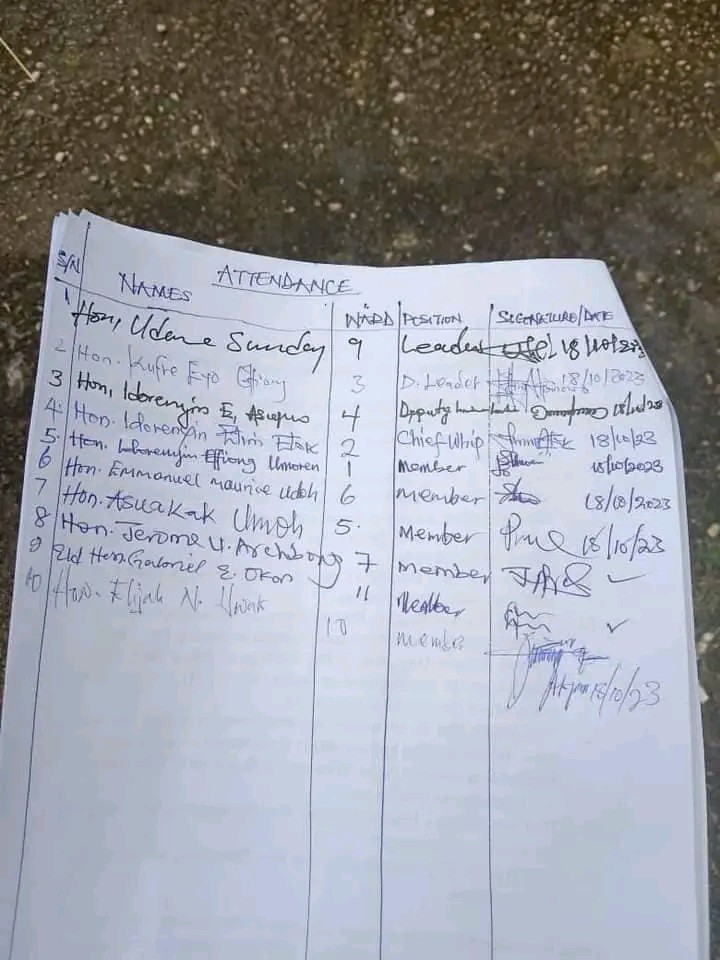 ATTENDANCE
S/N NAMES WARD POSITION SIGNATURE/DATE
1 Hon, Udeme Sunday 9 Leader 18/10/23
2 Hon. Kufre Eyo Efiong 3 D. Leader 18/10/2023
3 Hon, Idorenyin E, 4 Deputy 18/10/23
4. Hon. Idorenyin Etim Etuk 2 Chief Whip 18/10/23
5. Hon. Idorenyin Effiong Umoren 1 Member 18/10/2023
6 Hon. Emmanuel Maurice Udoh 6 Member 18/10/2023
7 Hon. Asuakak Umoh 5. Member 18/10/23
8 Hon. Jerome U. Archibong 7 Member
9 Eld Hon. Gabriel E. Okon 11 Member
10 Hon. Elijah N. Uwak 10 Member
18/10/23